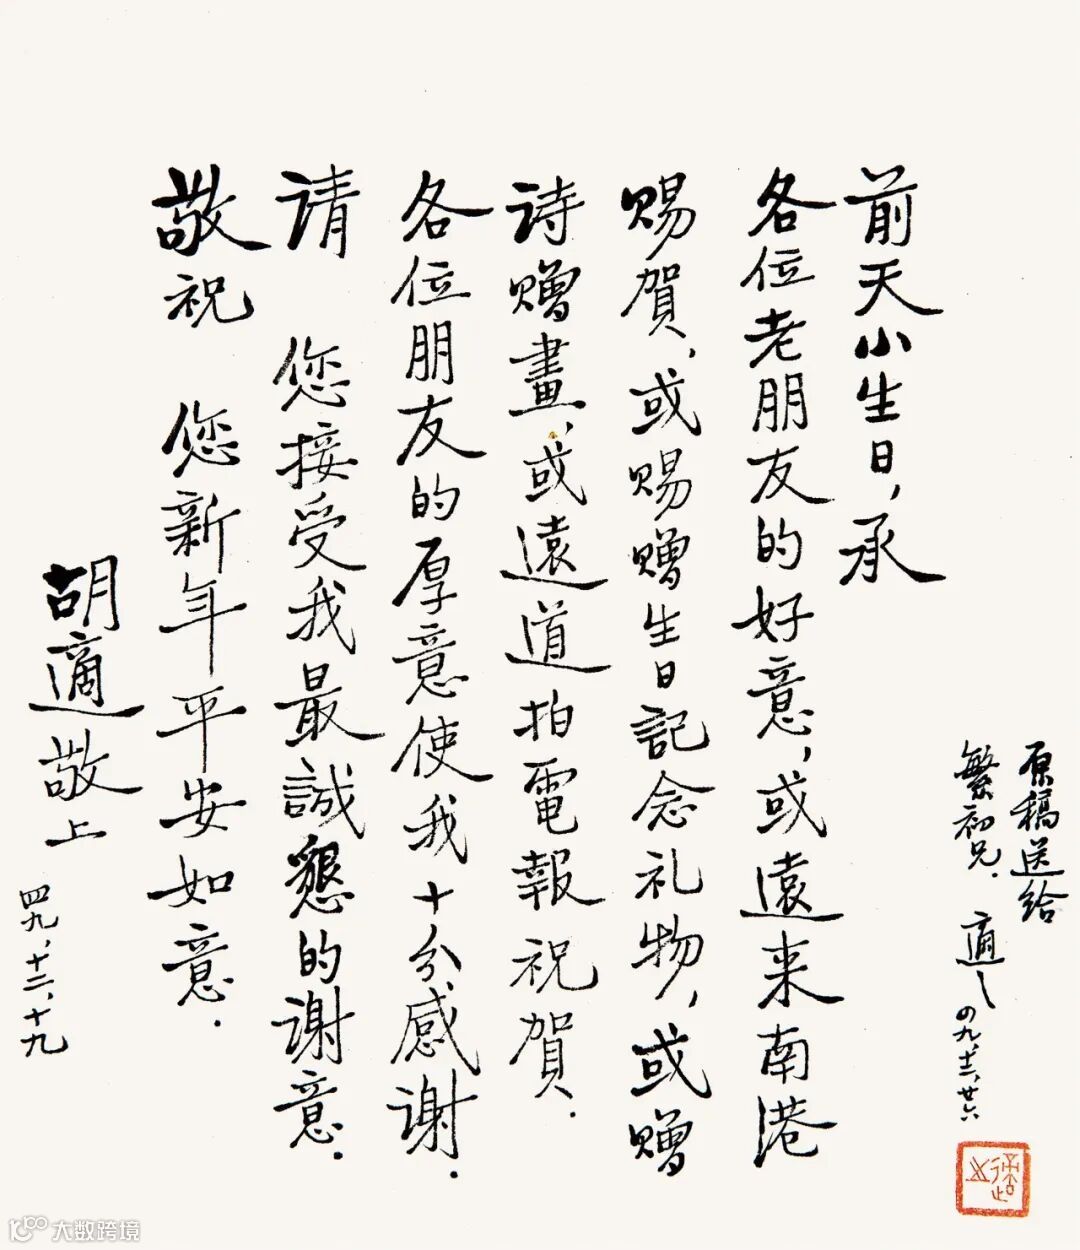 前天小生日，承
各位老朋友的好意，或遠来南港
赐賀，或赐赠生日記念礼物，或赠
诗赠畫，或遠道拍電報祝賀．
各位朋友的厚意使我十分感谢．
请 您接受我最誠懇的谢意．
敬祝 您新年平安如意．
胡適敬上
四九、十二、十九
原稿送给
繁初兄． 適
四九、十二、廿六
大数跨境